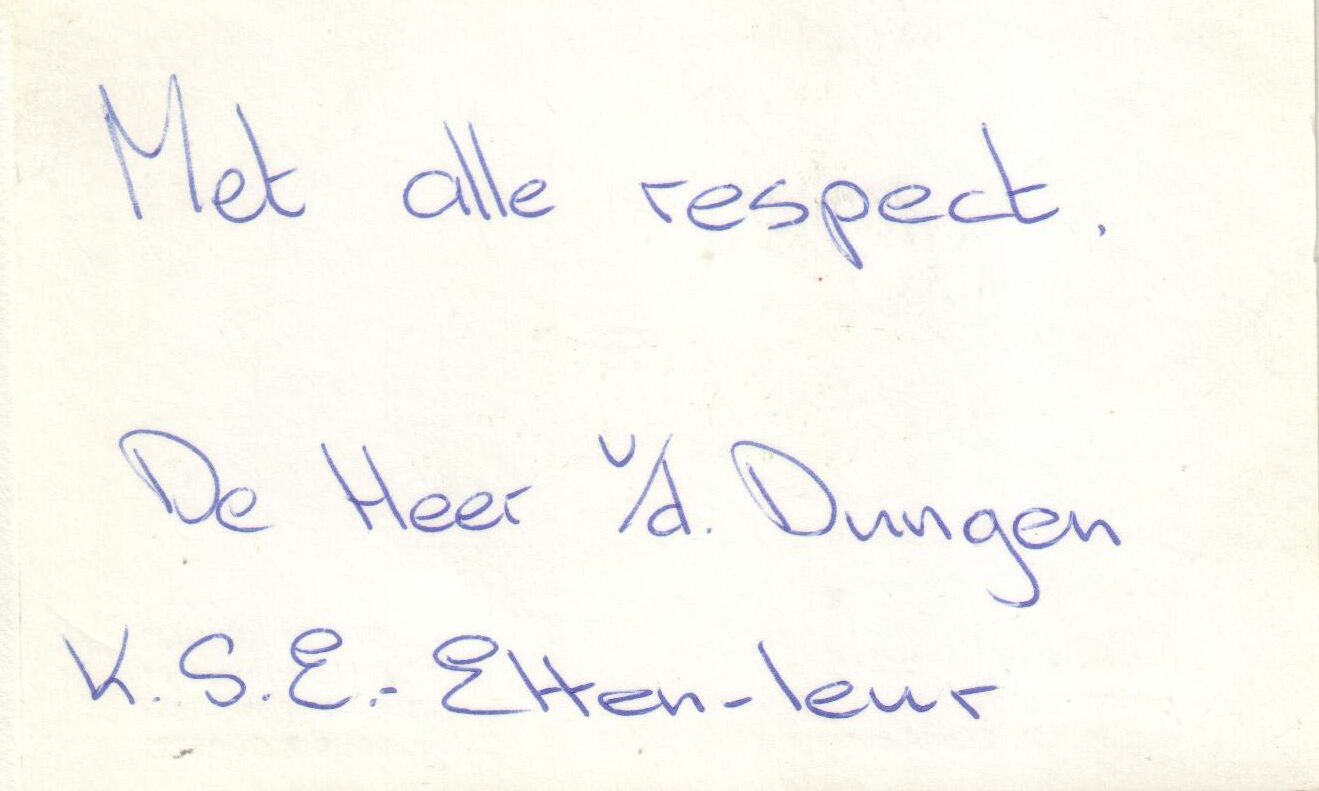 Met alle respect,
De Heer v/d. Dungen
K.S.E.- Etten-leur